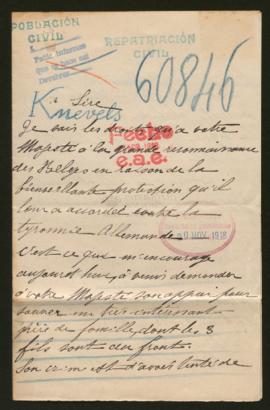 POBLACIÓN
CIVIL
REPATRIACIÓN
CIVIL
60846
Knevels
Sire
Je sais les droits qu'a votre
Majesté à la grande reconnaissance
des Belges en raison de la
bienveillante protection qu'il
leur a accordé contre la
tyrannie Allemande
c'est ce qui m'encourage
aujourd'hui, à venir demander
à votre Majesté son appui pour
sauver un très intéressant
père de famille, dont les 3
fils sont au front.
Son crime est d'avoir tenté de
Fecho
e.a.e.
NOV. 1918